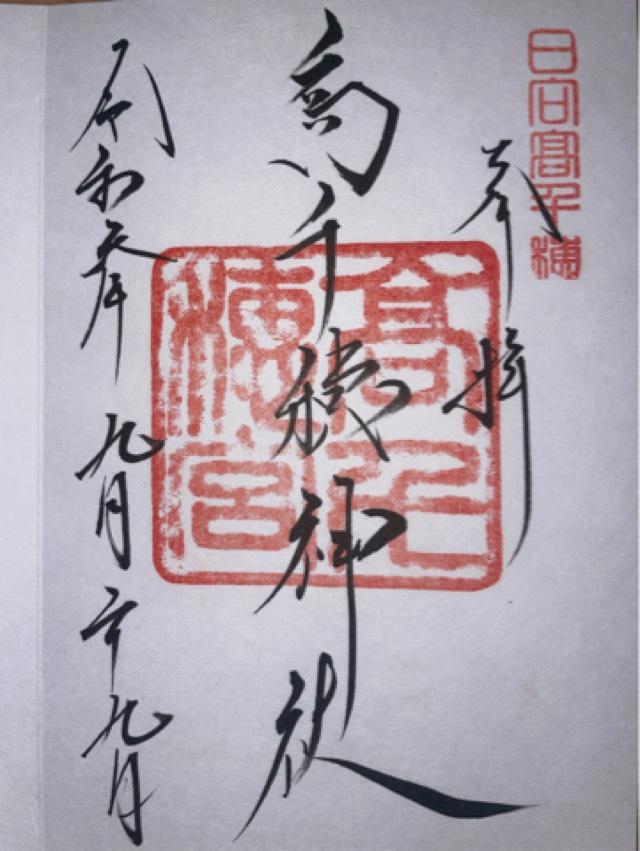 日向髙千穂
奉拝
高千穂神社
髙千
穂宮
令和参年九月二十九日